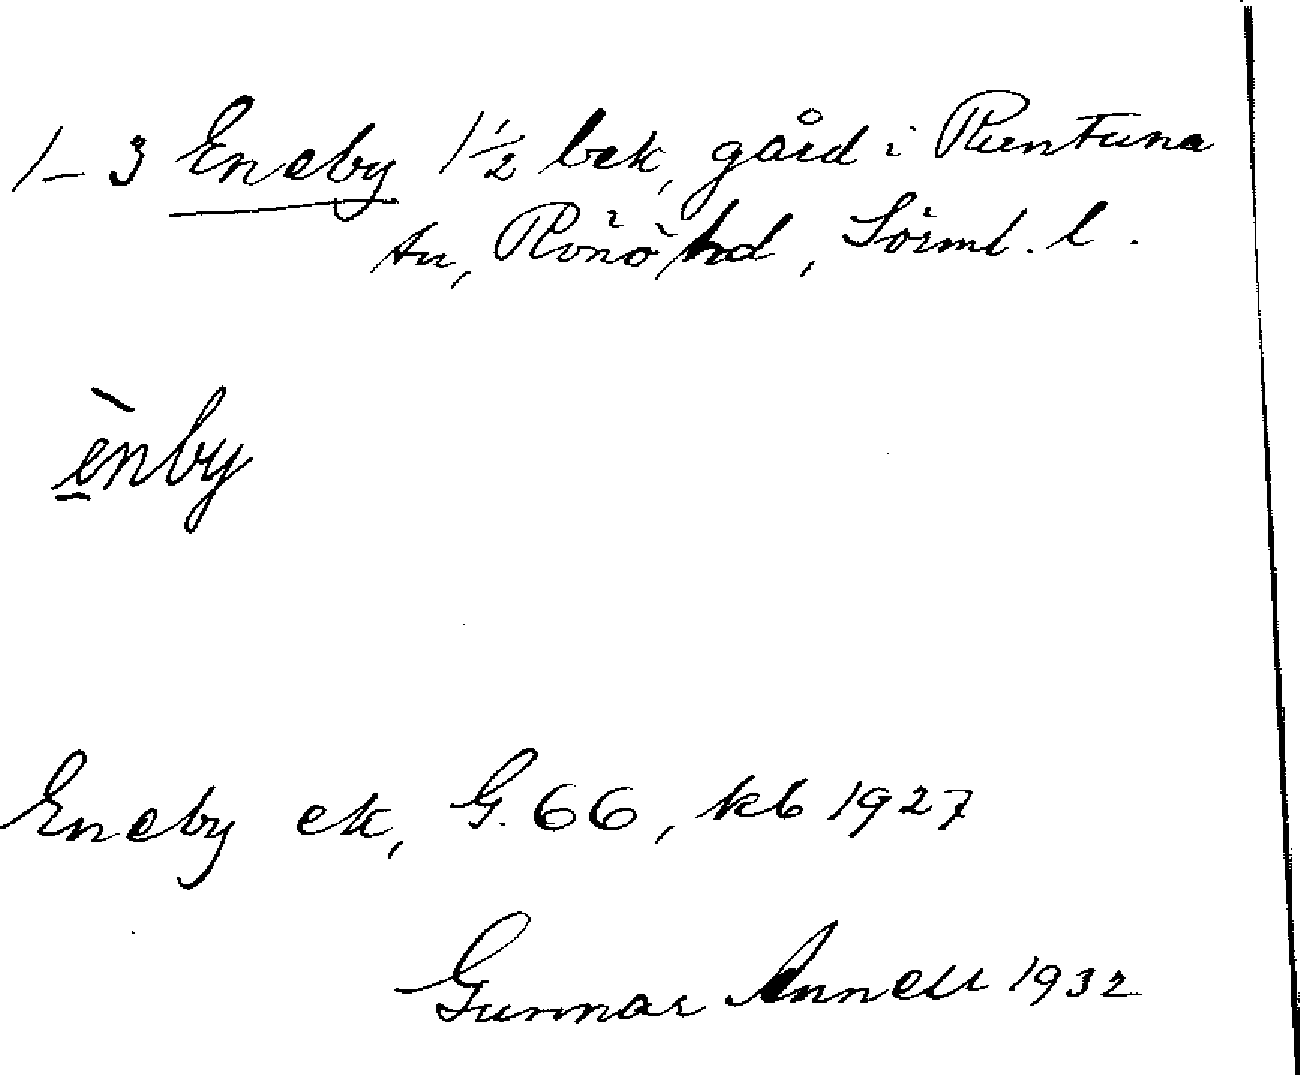 1–3 Eneby 1 1/2 bek, gård i Runtuna
sn, Rönö hd, Sörml. l.
ènby
Eneby ek, G. 66, kb 1927
Gunnar Annell 1932